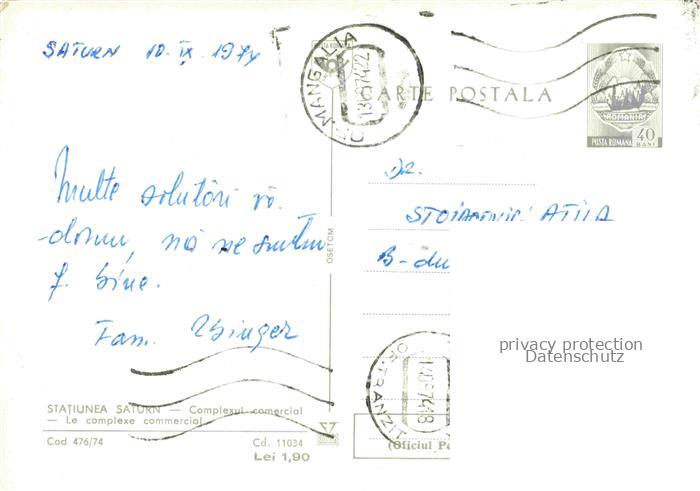 SATURN 10. IX. 1974
Multe salutări vă
dorim, noi ne simțim
f. bine.
Fam.
STAȚIUNEA SATURN — Complexul comercial
— Le complexe commercial
Cod 476/74
Cd. 11034
Lei 1,90
OSETOM
POȘTA ROMÂNĂ
OF. MANGALIA
13.09.74.22
CARTE POSTALA
ROMANIA
POSTA ROMANA
40
BANI
Dr.
ATILA
B-dul
privacy protection
Datenschutz
OF. TRANZIT
(Oficiul Po